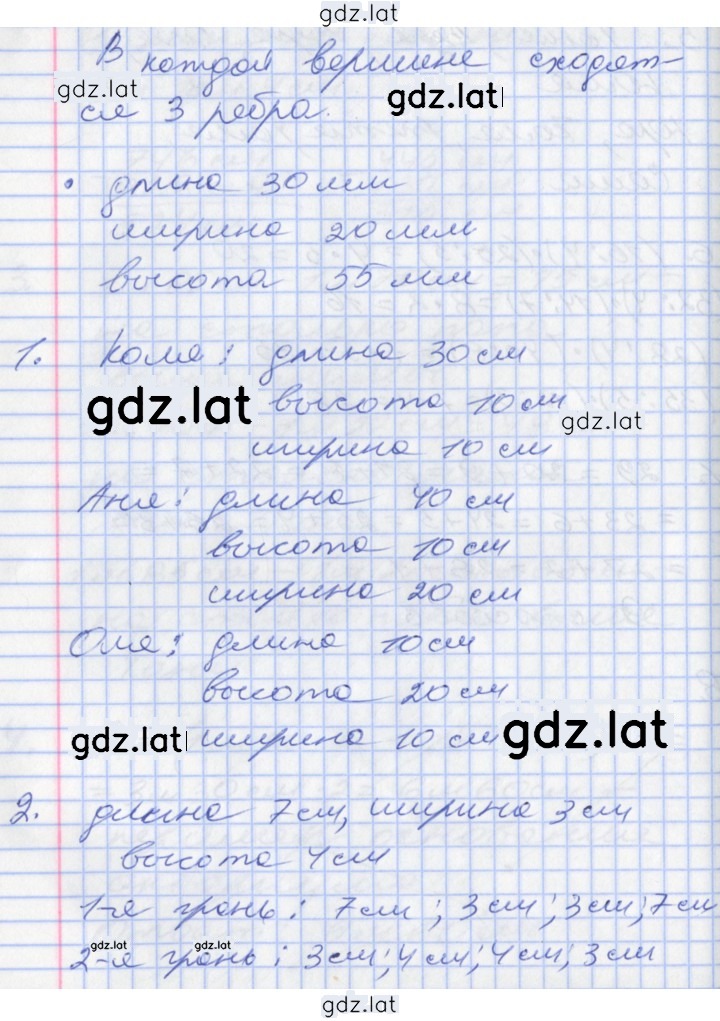 gdz.lat
В каждой вершине сходят-
gdz.lat gdz.lat
ся 3 ребра.
• длина 30 мм
ширина 20 мм
высота 55 мм
1. Коля: длина 30 см
gdz.lat высота 10 см gdz.lat
ширина 10 см
Аня: длина 40 см
высота 10 см
ширина 20 см
Оля: длина 10 см
высота 20 см
gdz.lat ширина 10 см gdz.lat
2. длина 7 см, ширина 3 см
высота 4 см
1-я грань: 7 см; 3 см; 3 см; 7 см
gdz.lat gdz.lat
2-я грань: 3 см; 4 см; 4 см; 3 см
gdz.lat